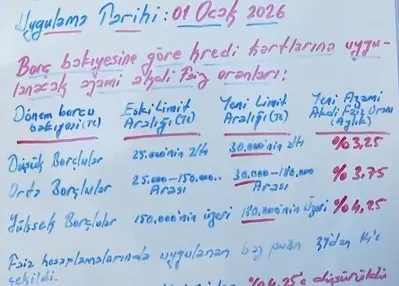 Uygulama Tarihi : 01 Ocak 2026
Borç bakiyesine göre kredi kartlarına uygu-
lanacak azami akdi faiz oranları :
Dönem borcu bakiyesi (TL) Eski Limit Aralığı (TL) Yeni Limit Aralığı (TL) Yeni Azami Akdi Faiz Oranı (Aylık)
Düşük Borçlular 25.000'nin altı 30.000'nin altı %3,25
Orta Borçlular 25.000-150.000.. Arası 30.000-180.000 Arası %3,75
Yüksek Borçlular 150.000'nin üzeri 180.000'nin Üzeri %4,25
Faiz hesaplamalarında uygulanan baz puan
çekildi.
%4,25'e düşürüldü